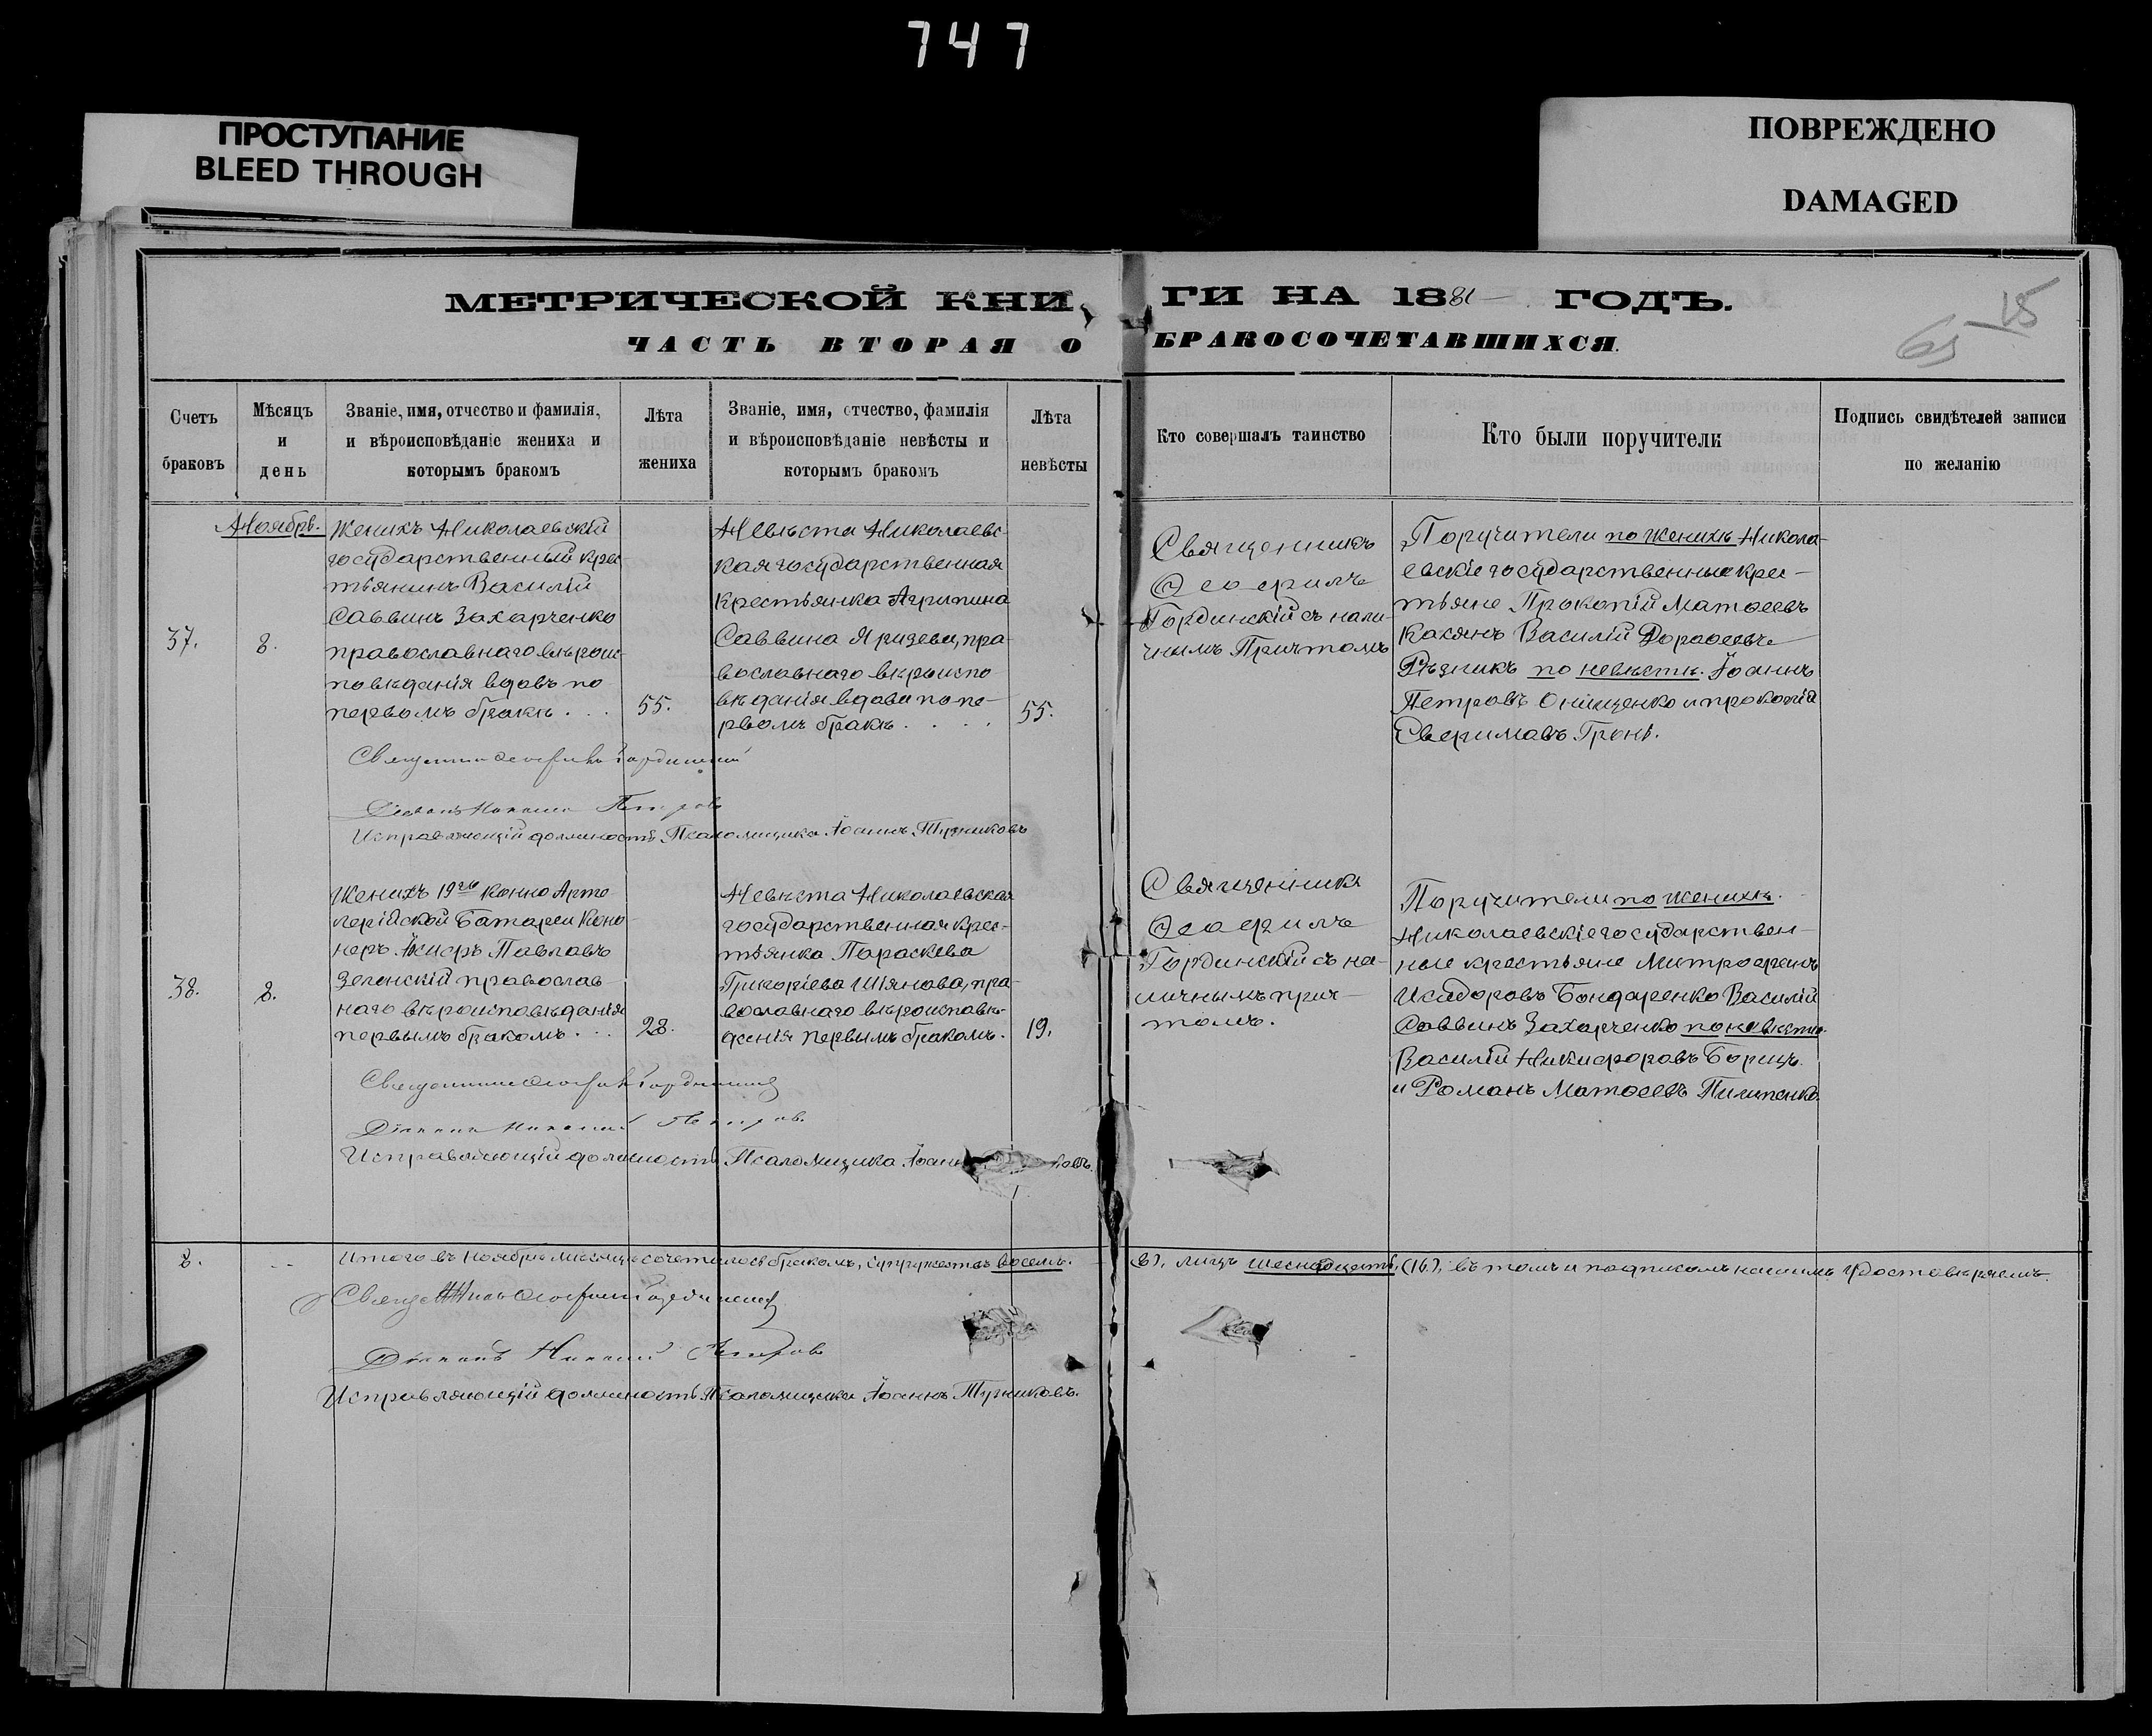 747
ПРОСТУПАНИЕ
BLEED THROUGH
ПОВРЕЖДЕНО
DAMAGED
МЕТРИЧЕСКОЙ КНИ ГИ НА 1881 ГОДЪ.
15
65
ЧАСТЬ ВТОРАЯ О БРАКОСОЧЕТАВШИХСЯ.
Счетъ
браковъ
Мѣсяцъ
и
день
Званіе, имя, отчество и фамилія,
и вѣроисповѣданіе жениха и
которымъ бракомъ
Лѣта
жениха
Званіе, имя, отчество, фамилія
и вѣроисповѣданіе невѣсты и
которымъ бракомъ
Лѣта
невѣсты
Кто совершалъ таинство
Кто были поручители
Подпись свидѣтелей записи
по желанію
Ноябрь.
37.
8.
Женихъ Николаевскій
государственный крес
тьянинъ Василій
Саввинъ Захарченко
православнаго вѣроис-
повѣданія вдовъ по
первомъ бракѣ . . .
55.
Невѣста Николаевс-
кая государственная
крестьянка Агрипина
Саввина Яризева, пра-
вославнаго вѣроиспо-
вѣданія вдова по пе-
рвомъ бракѣ . . . .
55.
Священникъ
Ѳеофилъ
Гординскій съ нали-
чнымъ Причтомъ
Поручители по женихѣ Никола-
евскіе государственные крес-
тьяне Прокопій Матѳеевъ
Касянъ Василій Дороѳеевъ
Рѣзникъ по невѣстѣ. Іоаннъ
Петровъ Онищенко и прокопій
Свиримовъ Грень.
Священникъ Ѳеофилъ Гординскій
Діаконъ Петровъ
Исправляющій должность Псаломщика Іоаннъ Тупиковъ
38.
8.
Женихъ 19го Конно Арти
лерійской Батареи Коно
неръ Павловъ
Зеленскій православ
наго вѣроисповѣданія
первымъ бракомъ. . .
28.
Невѣста Николаевская
государственная крес-
тьянка Параскева
Григоріева Шіянова, пра-
вославнаго вѣроисповѣ-
денія первымъ бракомъ.
19.
Священникъ
Ѳеофилъ
Гординскій съ на-
личнымъ прич-
томъ.
Поручители по женихѣ.
Николаевскіе государствен-
ные крестьяне Митрофанъ
Исидоровъ Бондаренко Василій
Саввинъ Захарченко по невѣстѣ.
Василій Никифоровъ Борищъ
и Романъ Матѳеевъ Пилипенко.
Священникъ Ѳеофилъ Гординскій
Діаконъ Петровъ.
Исправляющій должность Псаломщика Іоанн ковъ.
8. -- Итого въ Ноябрѣ мѣсяцѣ сочеталось бракомъ, супружествъ восемь. 8), лицъ шеснадцать, (16), въ томъ и подписомъ нашимъ удостовѣряемъ.
Священникъ Ѳеофилъ Гординскій
Діаконъ Петровъ
Исправляющій должность Псаломщика Іоаннъ Тупиковъ.